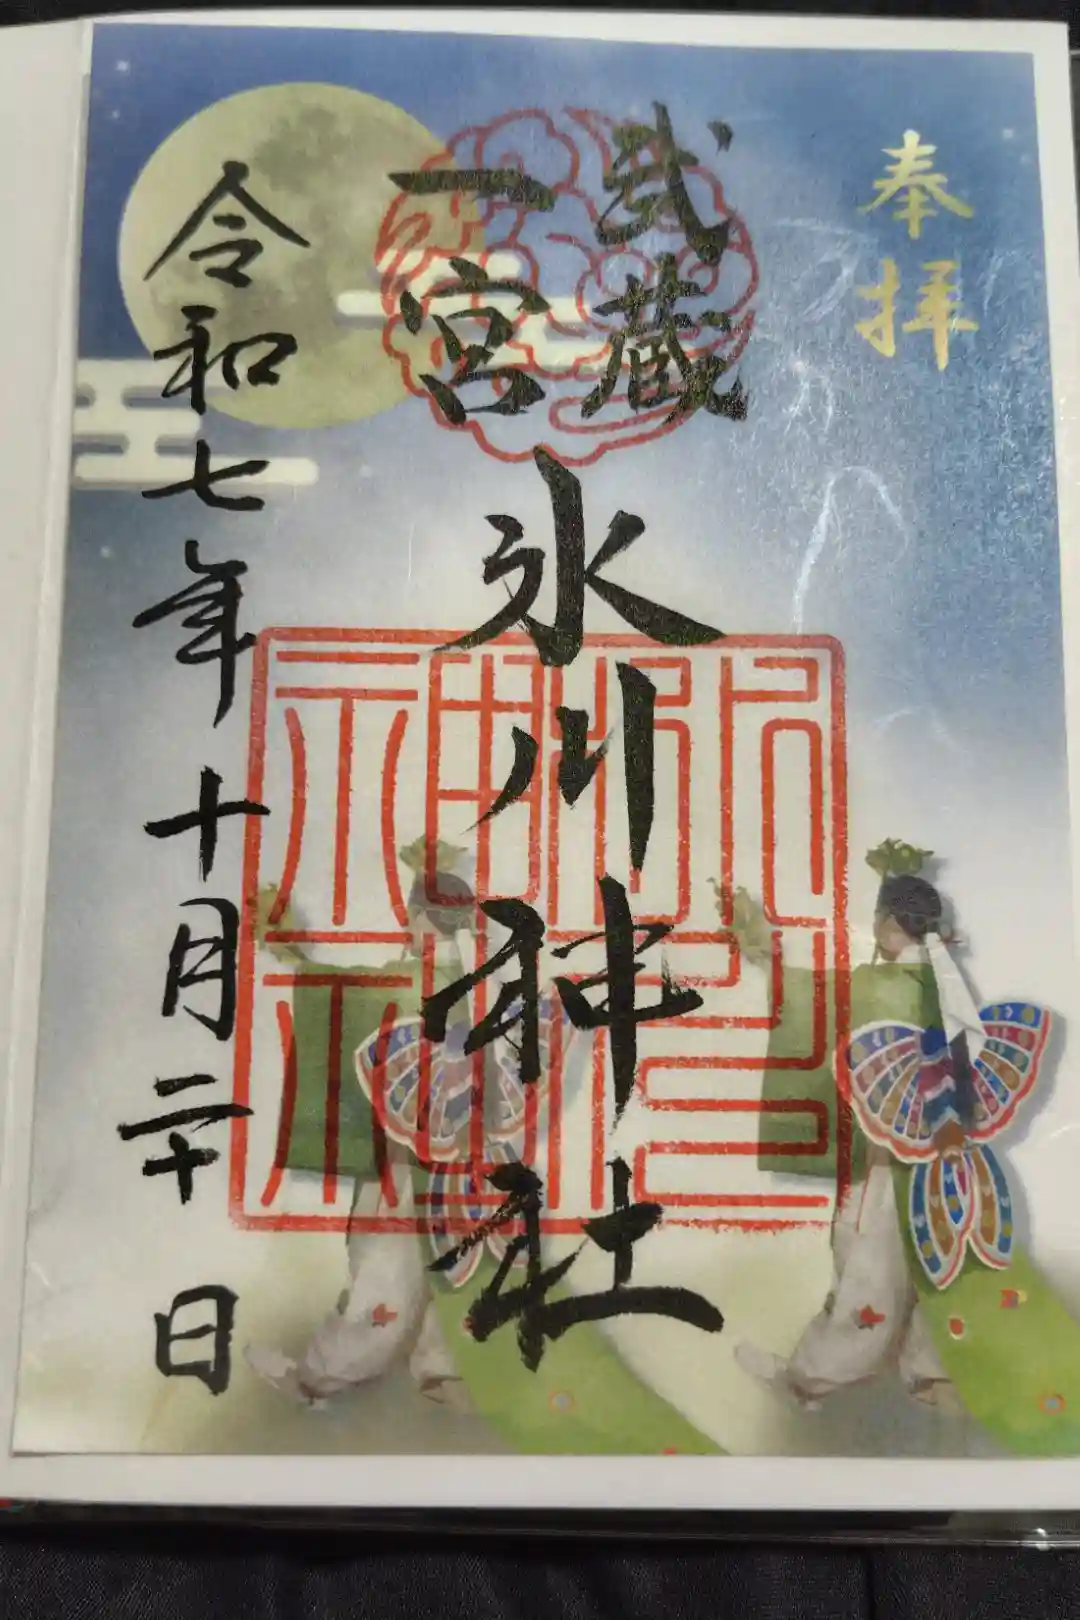 奉拝
武蔵
一宮
氷川神社
令和七年十月二十日